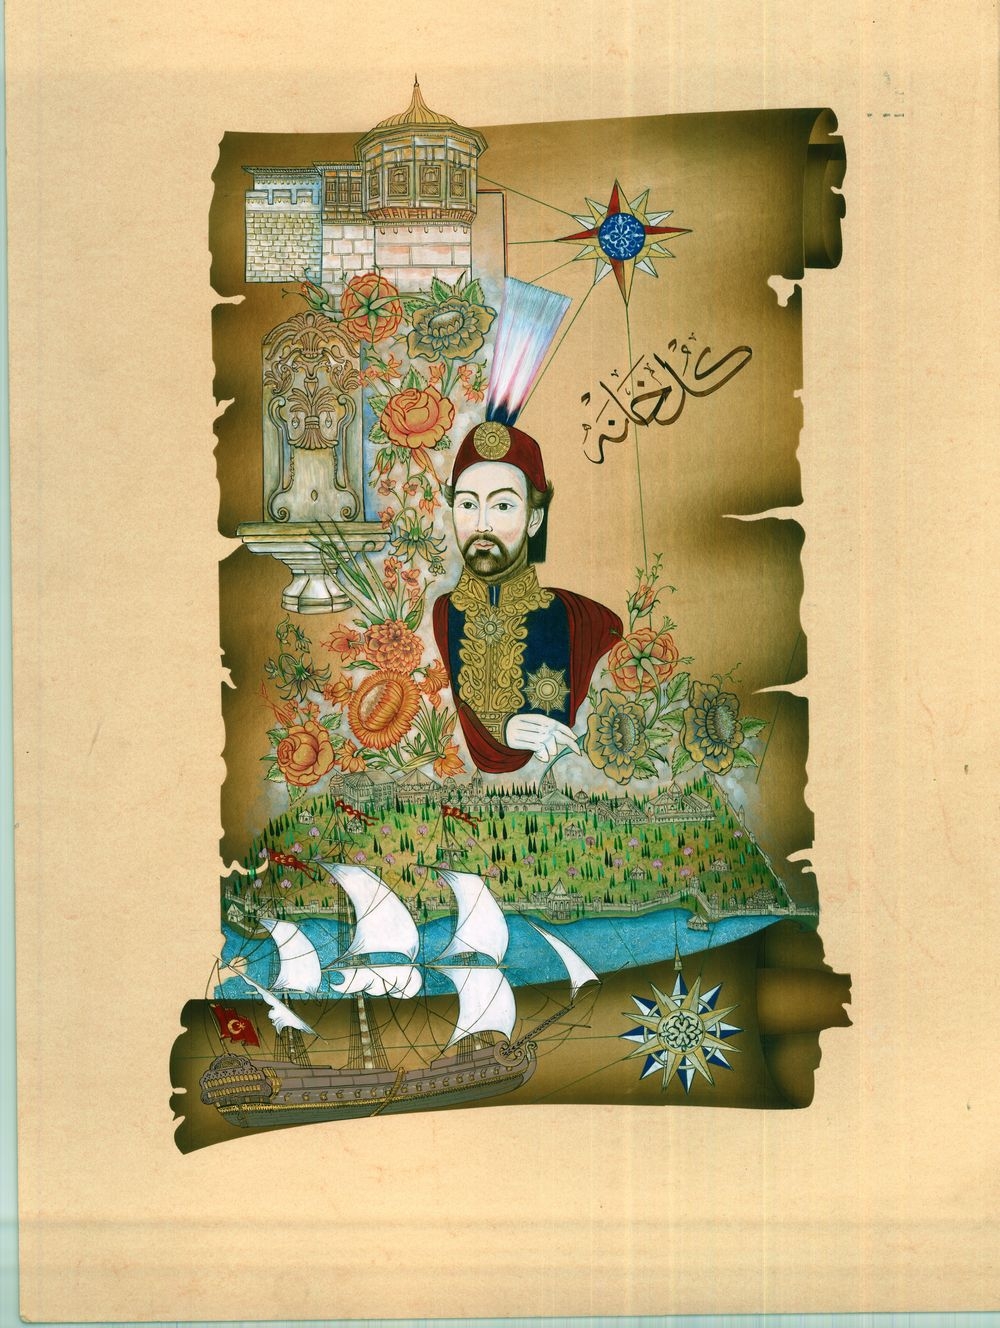 كلخانه